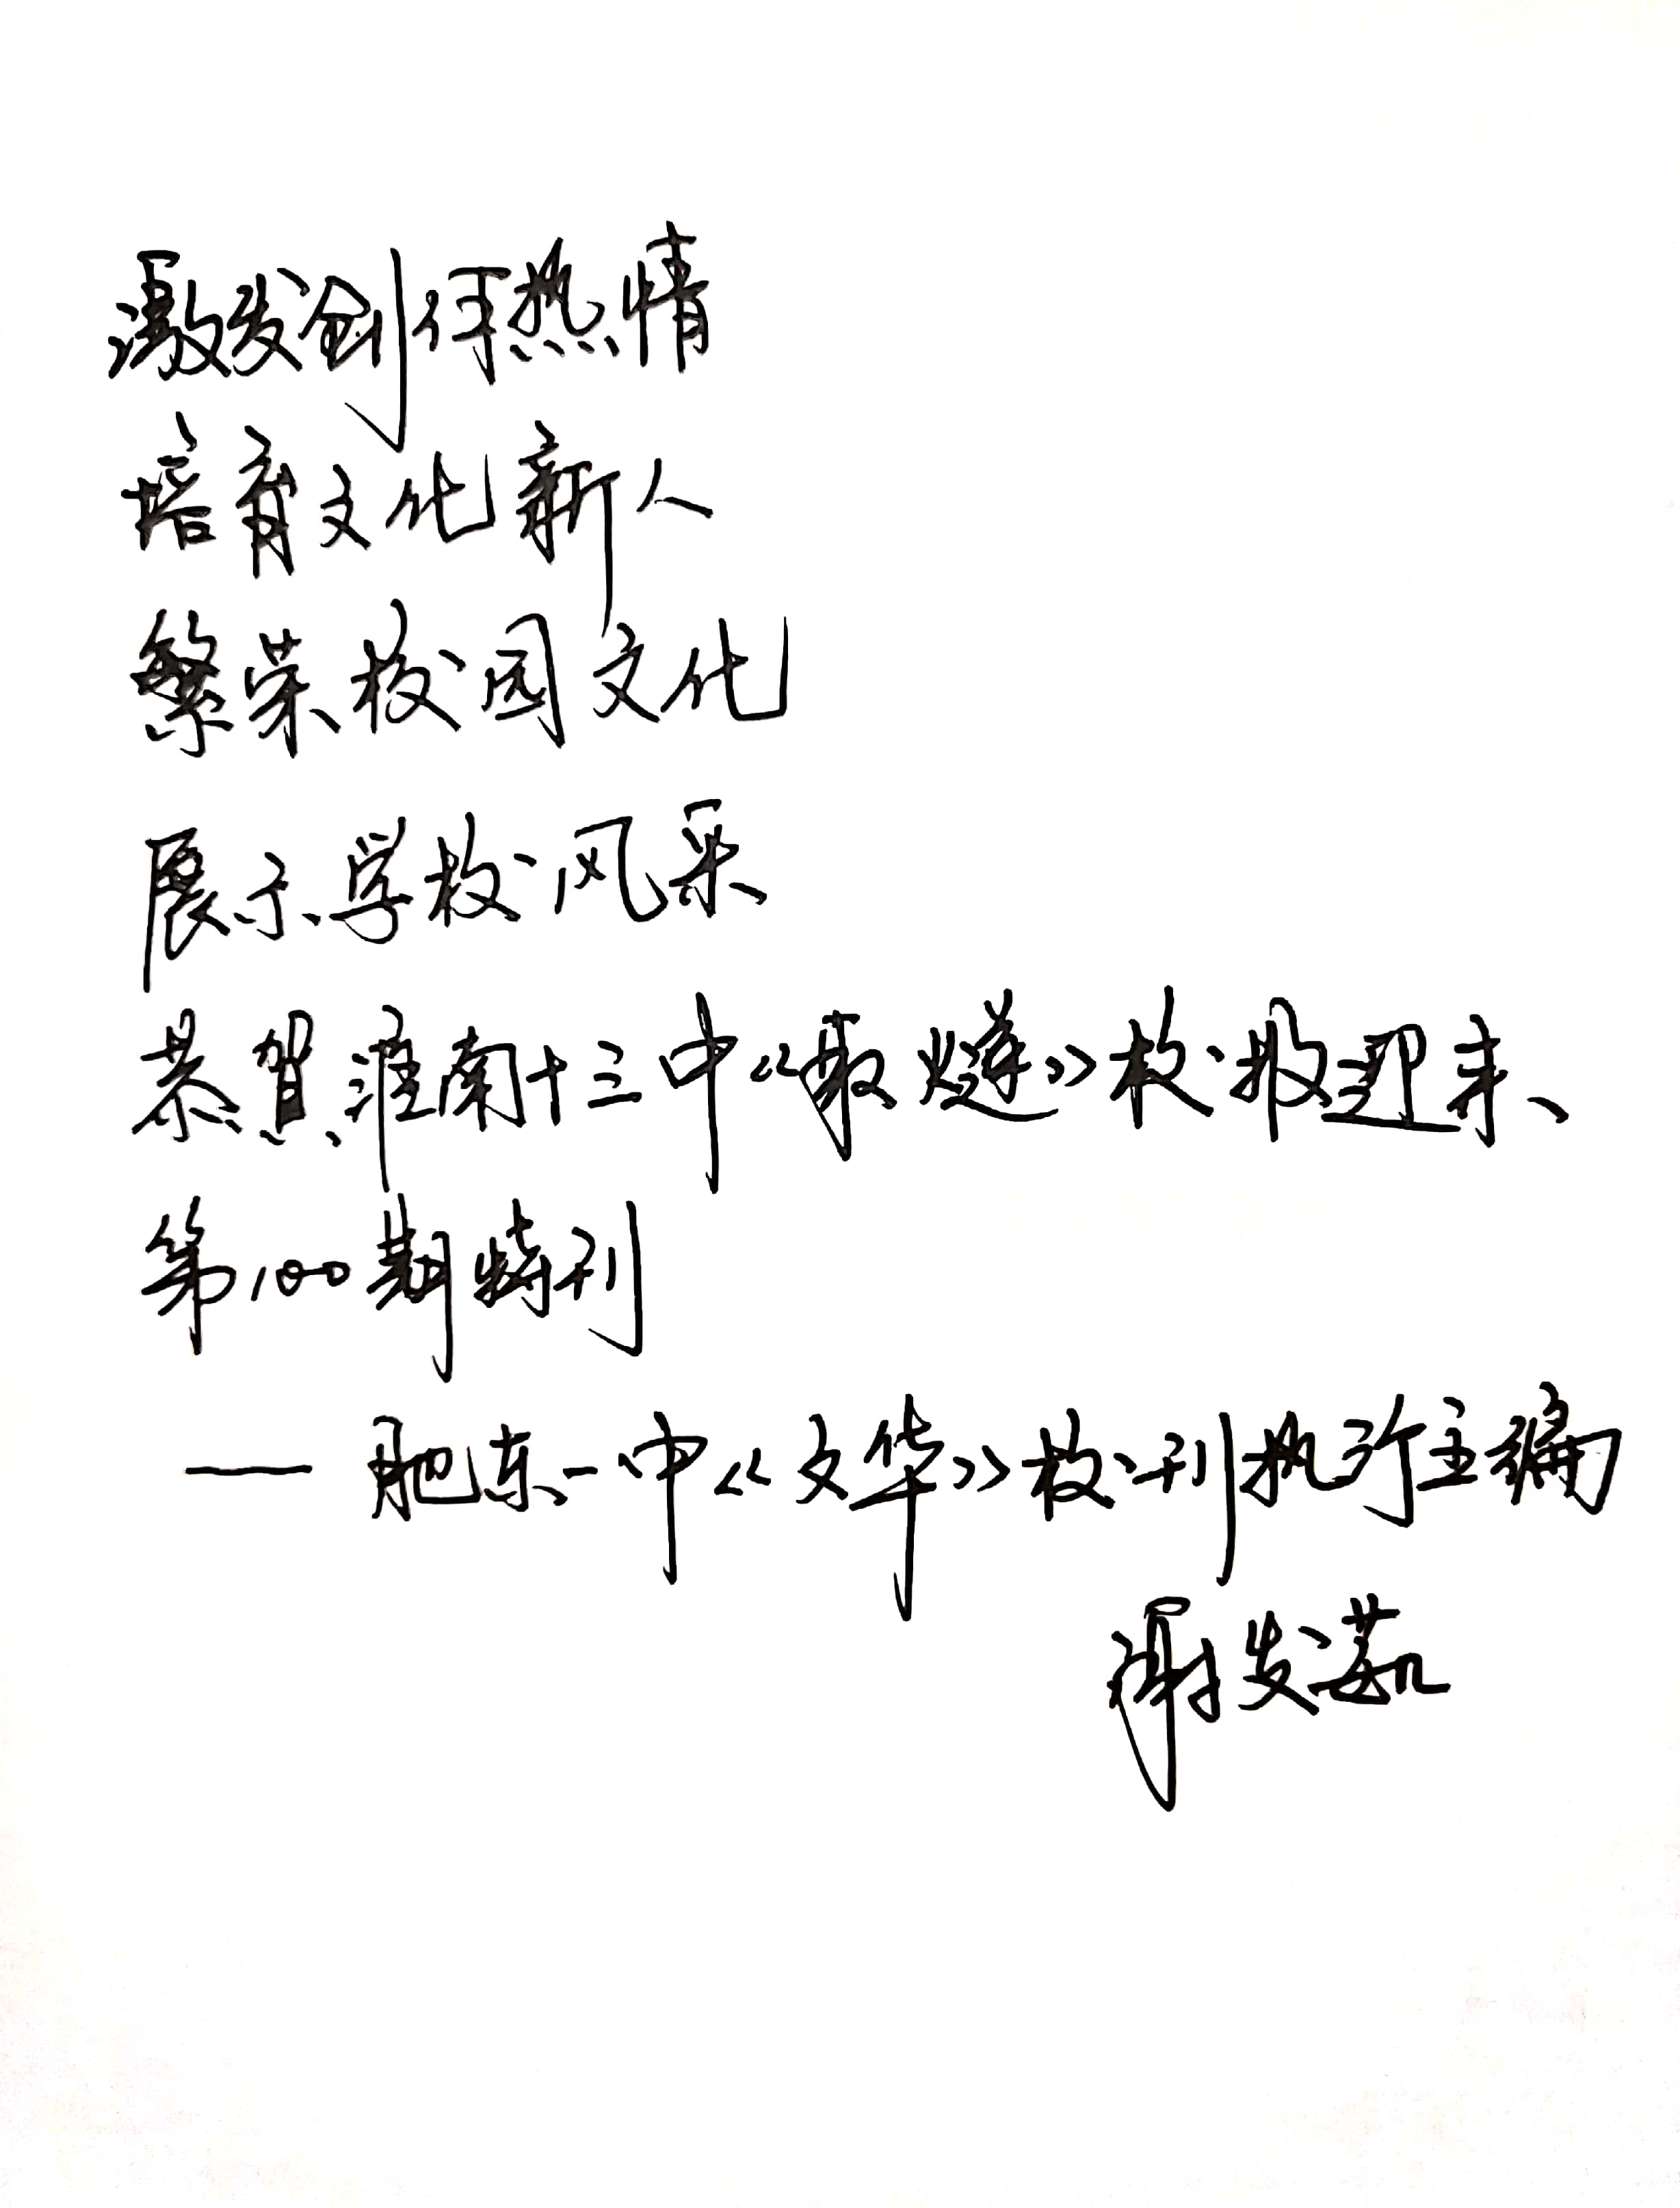 激发创作热情
培育文化新人
繁荣校园文化
展示学校风采
恭贺淮南十三中《取燧》校报迎来
第100期特刊
— 肥东一中《文华》校刊执行主编
谢发茹